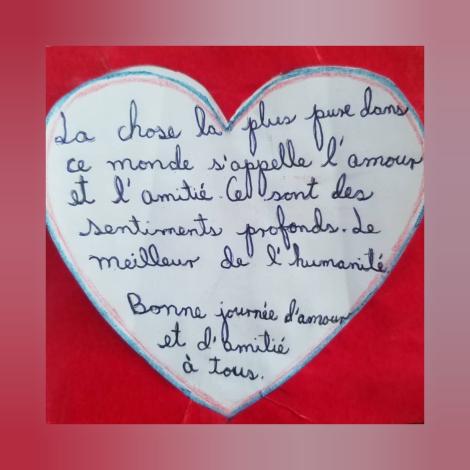 La chose la plus pure dans
ce monde s'appelle l'amour
et l'amitié. Ce sont des
sentiments profonds. Le
meilleur de l'humanité.
Bonne journée d'amour
et d'amitié
à tous.